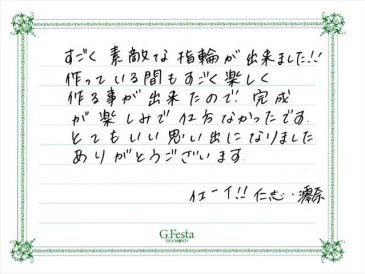 すごく素敵な指輪が出来ました!!
作っている間もすごく楽しく
作る事が出来たので! 完成
が楽しみで仕方なかったです.
とてもいい思い出になりました
ありがとうございます.
イエーイ!! 仁志・
G.Festa
DIAMOND